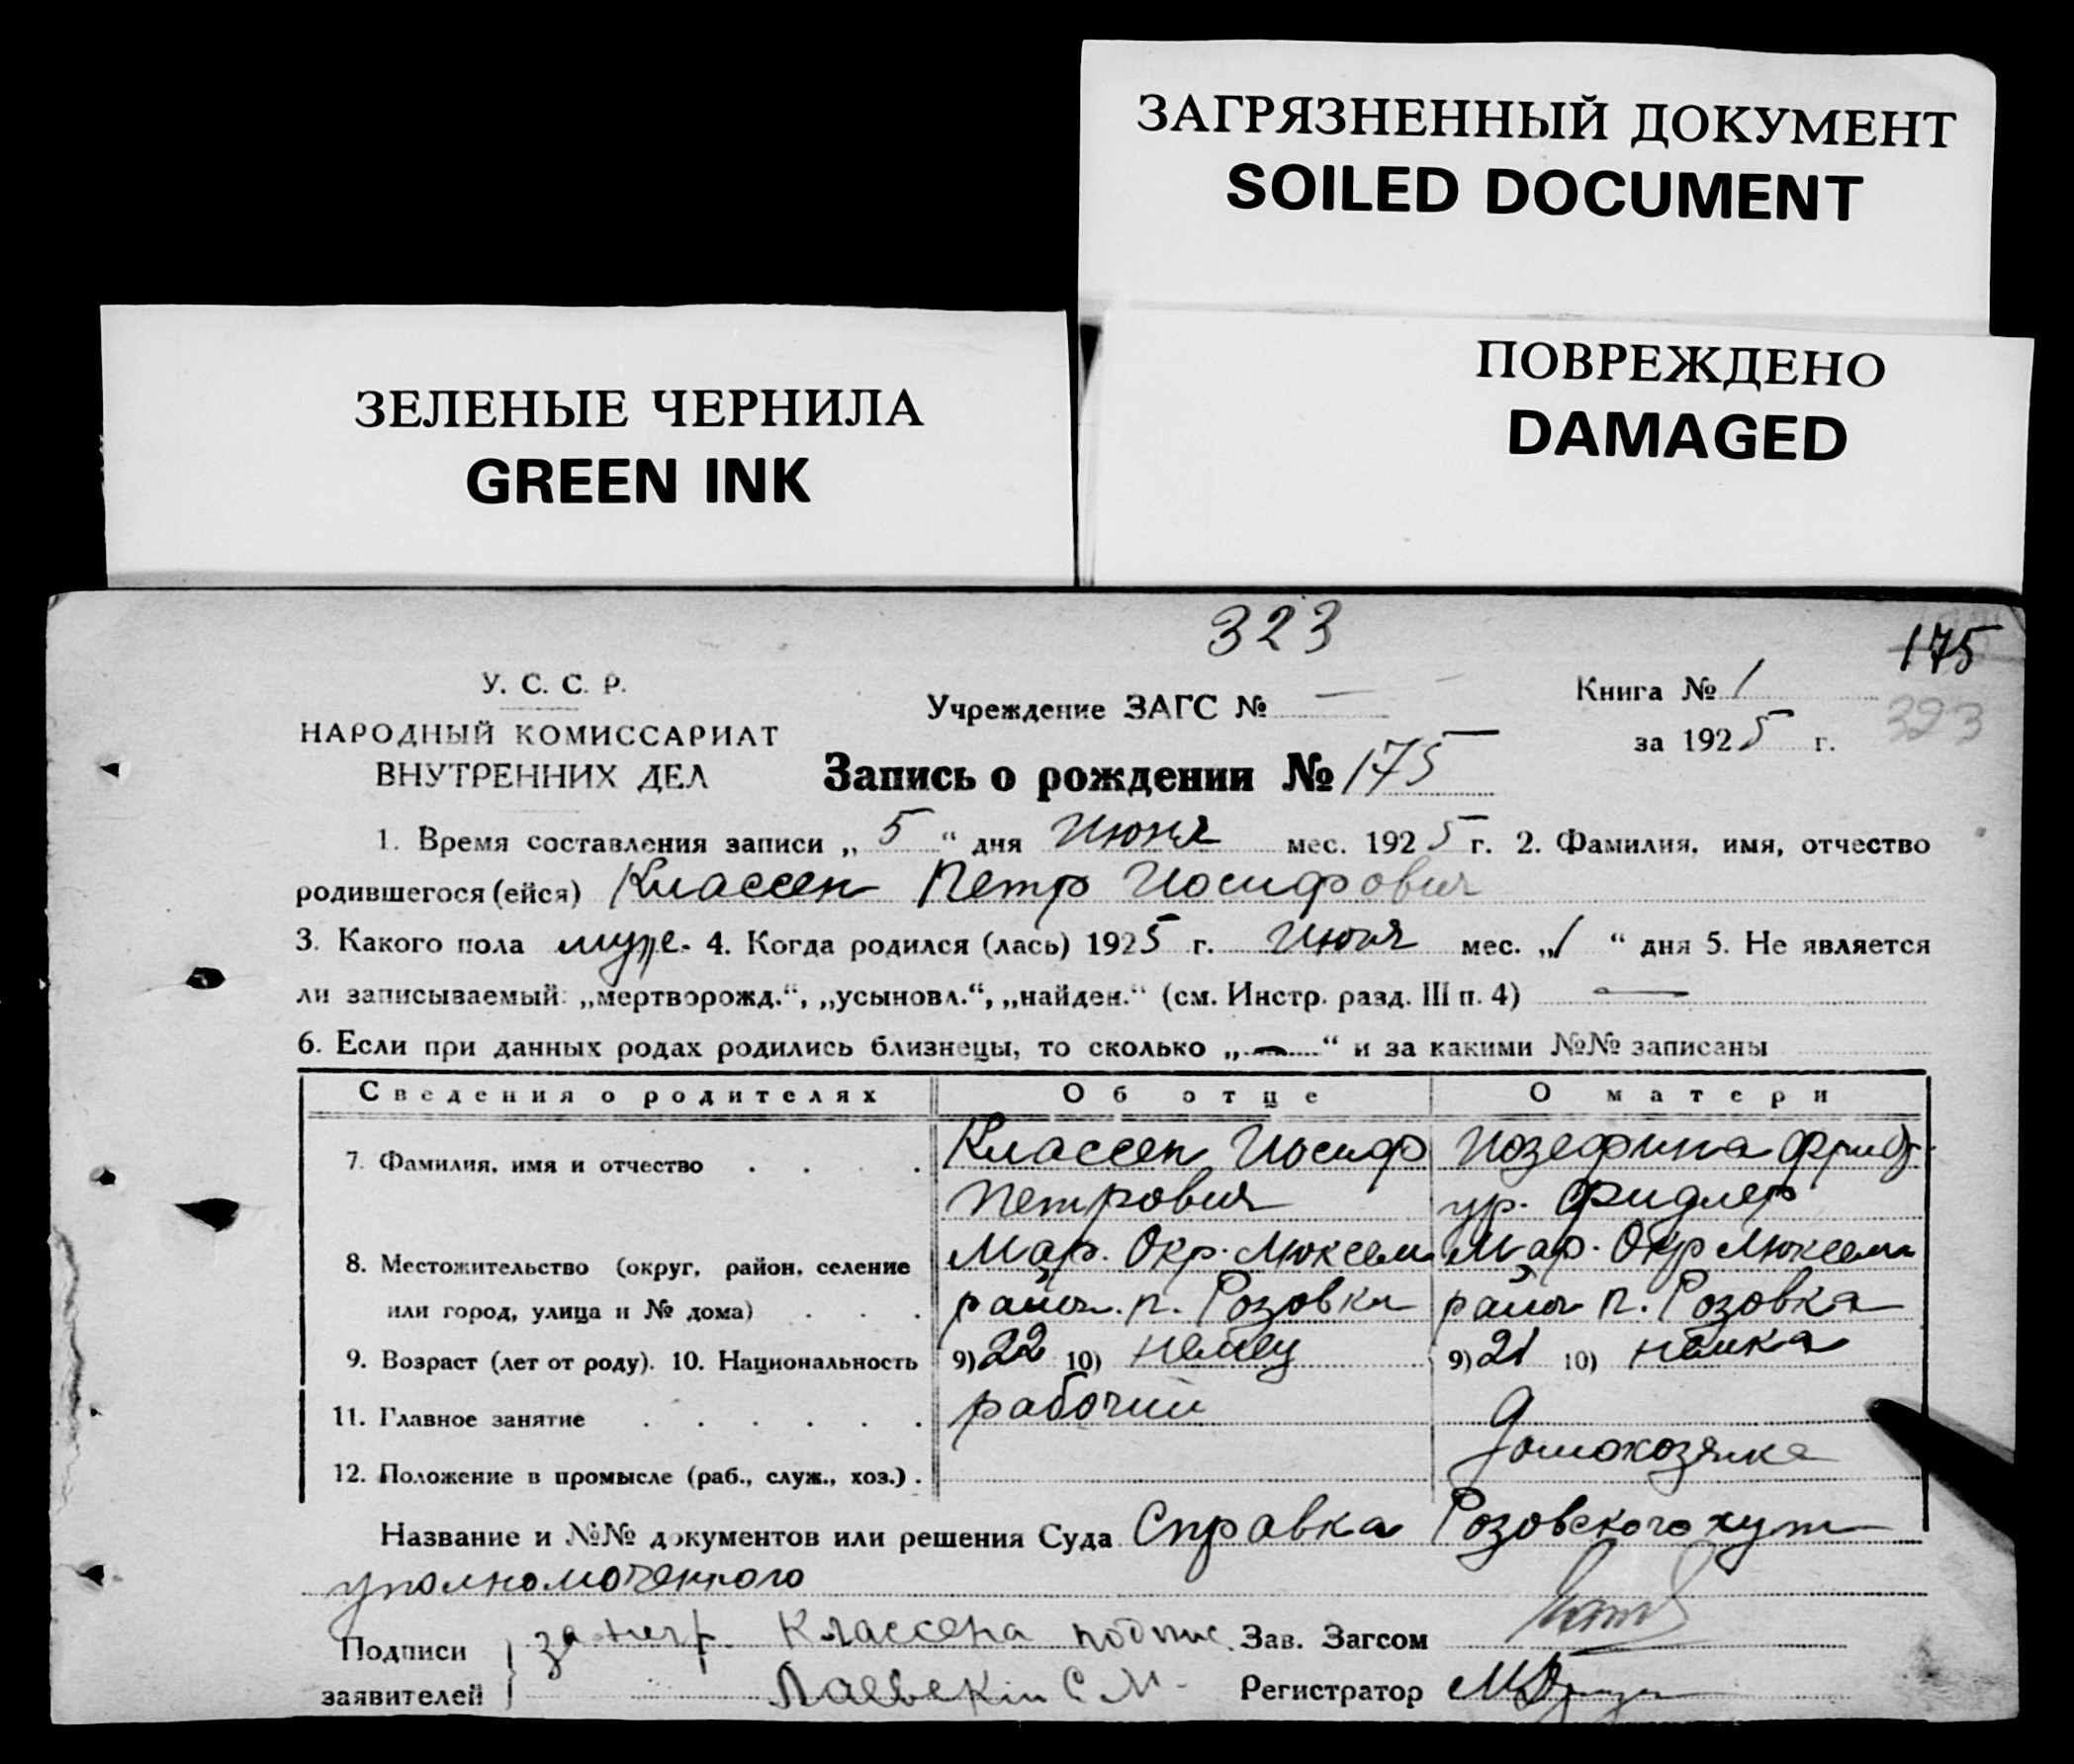 ЗАГРЯЗНЕННЫЙ ДОКУМЕНТ
SOILED DOCUMENT
ПОВРЕЖДЕНО
DAMAGED
ЗЕЛЕНЫЕ ЧЕРНИЛА
GREEN INK
323
175
323
У. С. С. Р.
НАРОДНЫЙ КОМИССАРИАТ
ВНУТРЕННИХ ДЕЛ
Учреждение ЗАГС № —
Книга № 1
за 1925 г.
Запись о рождении № 175
1. Время составления записи „ 5 “ дня Июня мес. 1925 г. 2. Фамилия, имя, отчество
родившегося (ейся) Классен Петр Иосифович
3. Какого пола муж. 4. Когда родился (лась) 1925 г. Июня мес. „1 “ дня 5. Не является
ли записываемый: „мертворожд.“, „усыновл.“, „найден.“ (см. Инстр. разд. III п. 4) —
6. Если при данных родах родились близнецы, то сколько „—“ и за какими №№ записаны
Сведения о родителях Об отце О матери
7. Фамилия, имя и отчество . . . . Классен Иосиф Иозефина Фрид.
Петрович ур. Фидлер
8. Местожительство (округ, район, селение Мар. Окр. Люксем Мар. Окр Люксем
или город, улица и № дома) . . . район. п. Розовка район п. Розовка
9. Возраст (лет от роду). 10. Национальность 9) 22 10) немец 9) 21 10) немка
11. Главное занятие . . . . . . рабочий
домохозяйка
12. Положение в промысле (раб., служ., хоз.) .
Название и №№ документов или решения Суда Справка Розовского хут
уполномоченного
Подписи за негр. Классена подпис. Зав. Загсом
заявителей С М. Регистратор